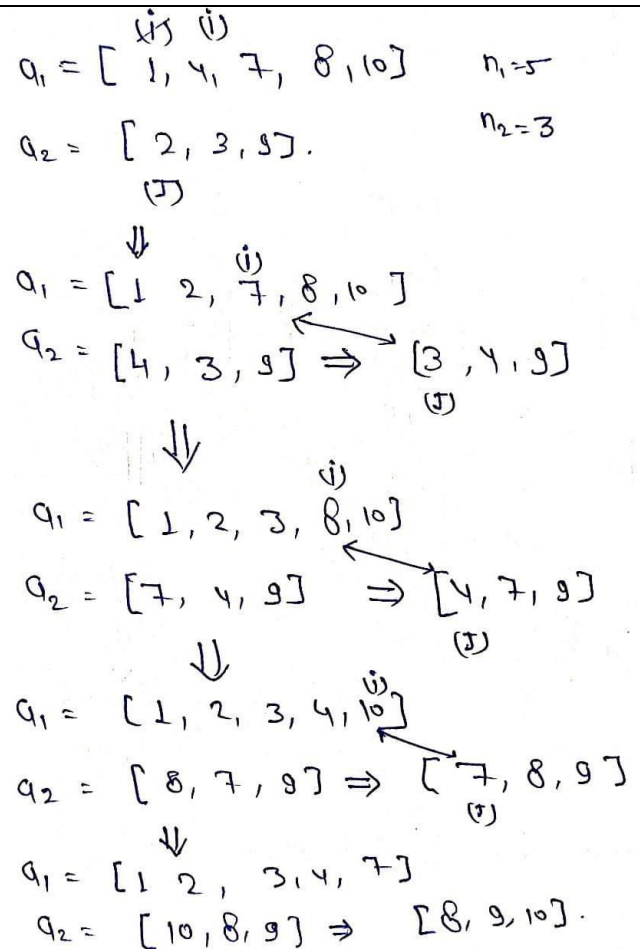 (i) (i)
a₁ = [ 1, 4, 7, 8, 10] n₁=5
a₂ = [ 2, 3, 9]. n₂=3
(J)
⇓
(i)
a₁ = [1 2, 7, 8, 10 ]
a₂ = [4, 3, 9] ⇒ [3, 4, 9]
(J)
⇓
(i)
a₁ = [ 1, 2, 3, 8, 10]
a₂ = [7, 4, 9] ⇒ [4, 7, 9]
(J)
⇓
(i)
a₁ = [1, 2, 3, 4, 10]
a₂ = [8, 7, 9] ⇒ [7, 8, 9]
(J)
⇓
a₁ = [1 2, 3, 4, 7]
a₂ = [10, 8, 9] ⇒ [8, 9, 10].